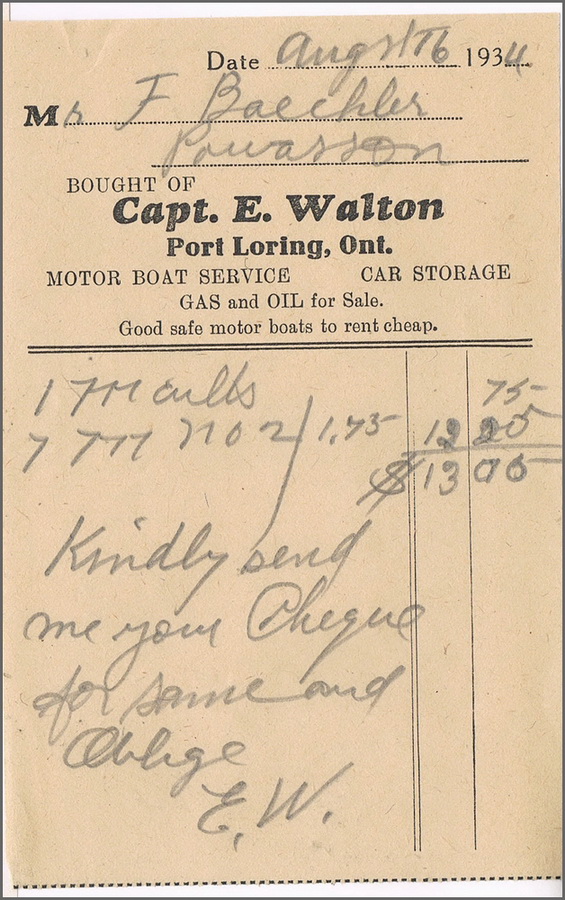 Date August 16 1934
Mr F Baechler
Powasson
BOUGHT OF
Capt. E. Walton
Port Loring, Ont.
MOTOR BOAT SERVICE CAR STORAGE
GAS and OIL for Sale.
Good safe motor boats to rent cheap.
1 M culls 75
7 M no 2 / 1.75 12 25
$ 13 00
Kindly send
me your Cheque
for same and
Oblige
E. W.